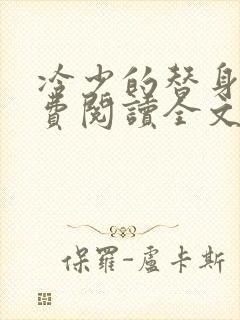 冷少的替身
費閱讀全文
保羅-盧卡斯